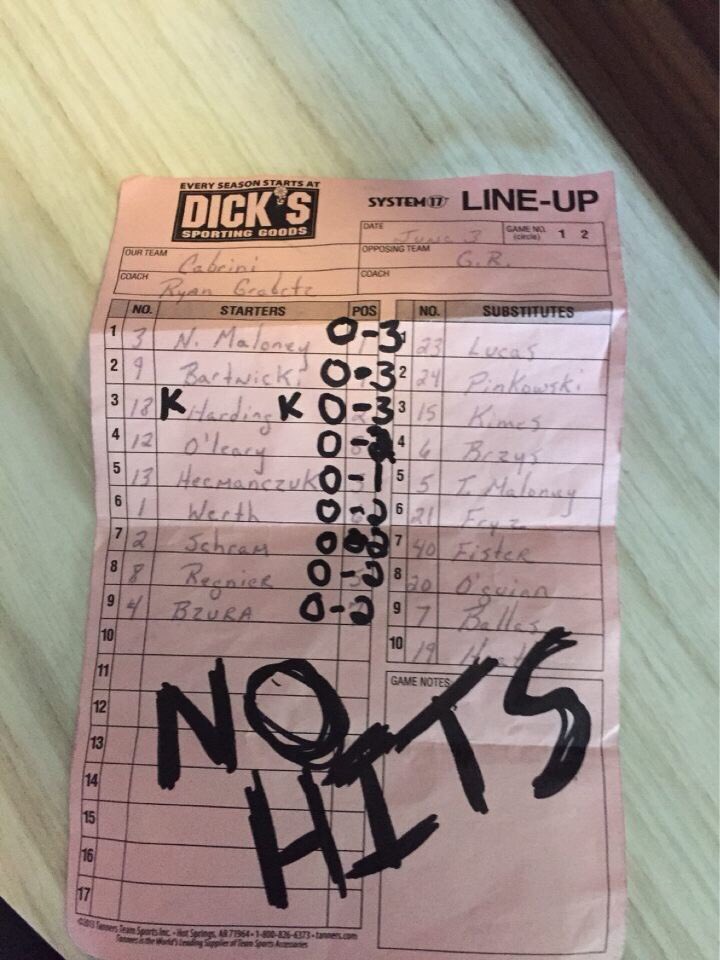 EVERY SEASON STARTS AT
DICK'S
SPORTING GOODS
SYSTEM 17 LINE-UP
OUR TEAM Cabrini
COACH Ryan
DATE June 3 GAME NO. (circle) 1 2
OPPOSING TEAM G.R.
COACH
NO. STARTERS POS
1 3 N. Maloney 0-3
2 9 Bartwicki 0-3
3 18 K Harding K 0-3
4 12 O'leary 0-
5 13 Hermanczuk 0-1
6 1 Werth 0-2
7 2 Schram 0
8 8 Regnier 0-2
9 4 BZURA 0-2
10
11
12
13
14
15
16
17
NO. SUBSTITUTES
1 23 Lucas
2 24 Pinkowski
3 15 Kimes
4 6 Brzys
5 5 T. Maloney
6 21
7 40 Fister
8 20 O'guinn
9 7 Ballas
10 19
GAME NOTES
NO
HITS
©2013 Tanners Team Sports Inc. • Hot Springs, AR 71964 • 1-800-826-6373 • tanners.com
Tanners is the World's Leading Supplier of Team Sports Accessories